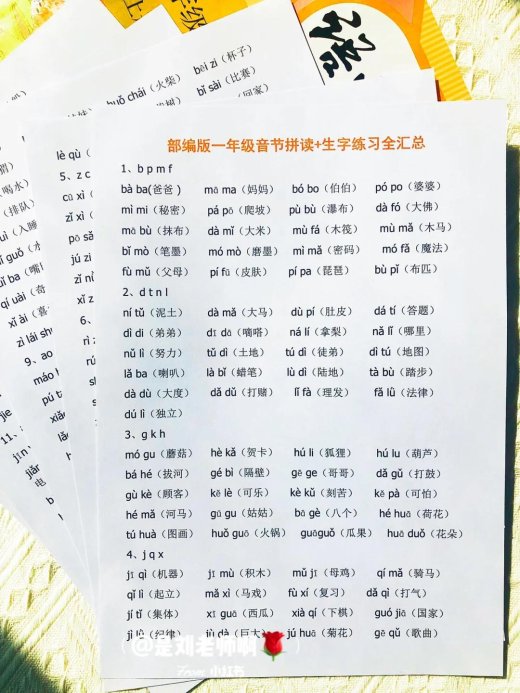 年级
上
huǒ chái（火柴）
bēi zi（杯子）
bǐ sài（比赛）
回家）
喝水）
（排队）
（入睡
lè qù（
5、z c
cā xì（
zì xǐ（
qí guài（奇
xǐ ài（喜
zì lái shu
6、
9、ao
máo
11、
部编版一年级音节拼读+生字练习全汇总
1、b p m f
bà ba(爸爸） mā ma（妈妈） bó bo（伯伯） pó po（婆婆）
mì mi（秘密） pá pō（爬坡） pù bù（瀑布） dà fó（大佛）
mā bù（抹布） dà mǐ（大米） mù fá（木筏） mù mǎ（木马）
bǐ mò（笔墨） mó mò（磨墨） mì mǎ（密码） mó fǎ（魔法）
fù mǔ（父母） pí fū（皮肤） pí pa（琵琶） bù pǐ（布匹）
2、d t n l
ní tǔ（泥土） dà mǎ（大马） dù pí（肚皮） dá tí（答题）
dì di（弟弟） dī dā（嘀嗒） ná lí（拿梨） nǎ lǐ（哪里）
nǔ lì（努力） tǔ dì（土地） tú dì（徒弟） dì tú（地图）
lǎ ba（喇叭） là bǐ（蜡笔） lù dì（陆地） tà bù（踏步）
dà dù（大度） dǎ dǔ（打赌） lǐ fà（理发） fǎ lǜ（法律）
dú lì（独立）
3、g k h
mó gu（蘑菇） hè kǎ（贺卡） hú li（狐狸） hú lu（葫芦）
bá hé（拔河） gé bì（隔壁） gē ge（哥哥） dǎ gǔ（打鼓）
gù kè（顾客） kě lè（可乐） kè kǔ（刻苦） kě pà（可怕）
hé mǎ（河马） gū gu（姑姑） bā gè（八个） hé huā（荷花）
tú huà（图画） huǒ guō（火锅） guāguǒ（瓜果） huā duǒ（花朵）
4、j q x
jī qì（机器） jī mù（积木） mǔ jī（母鸡） qí mǎ（骑马）
qǐ lì（起立） mǎ xì（马戏） fù xí（复习） dǎ qì（打气）
jí tǐ（集体） xī guā（西瓜） xià qí（下棋） guó jiā（国家）
jì lǜ（纪律） jù dà（巨大） jú huā（菊花） gē qǔ（歌曲）
@是刘老师啊